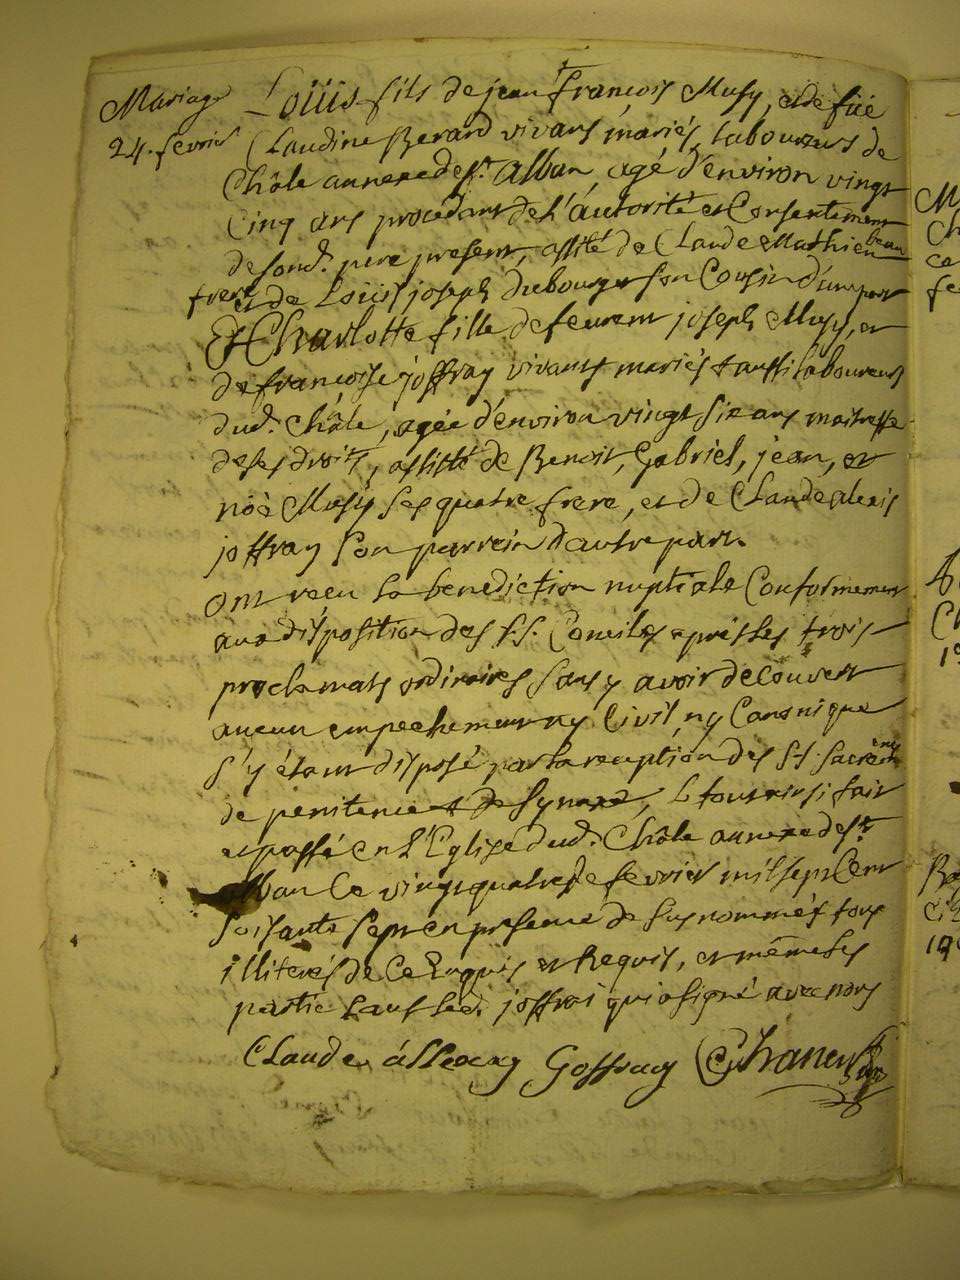 Mariage
24. fevrier
Loüis fils de jean françois Musy, et de füe
Claudine Berard vivans mariés, laboureurs de
Châle annexe de st. alban, agé d'environ vingt
Cinq ans procédant de l'autorité et Consentement
de sond. pere present, assité de Claude Mathieu beau
frere et de Loüis joseph dubourget son Cousin d'une part
Et Charlotte fille de feu joseph Musy, et
de françoise joffray vivants mariés aussi laboureurs
dud. Châle, agée d'environ vingt six ans maitresse
de ses droits, assisté de Benoit, Gabriel, jean, et
noë Musy ses quatre frere, et de Claude alexis
joffray son parrein d'autre part.
ont receu la benediction nuptiale Conformement
aux disposition des S.S. Conciles après les trois
proclamats ordinaires sans y avoir decouvert
aucun empechement ny Civil, ny Canonique
s'y étant disposé par la reception des SS. Sacrements
de penitence et de Synaxe, le tout ainsi fait
et passé en l'Eglise dud. Châle annexe de st.
alban le vingt quatre de fevrier mil sept Cent
soisante sept en presence de susnommés tous
illiterés de Ce Enquis et Requis, et même les
partie sauf led. joffrai qui a signé avec nous
Claude álleacxy Goffray